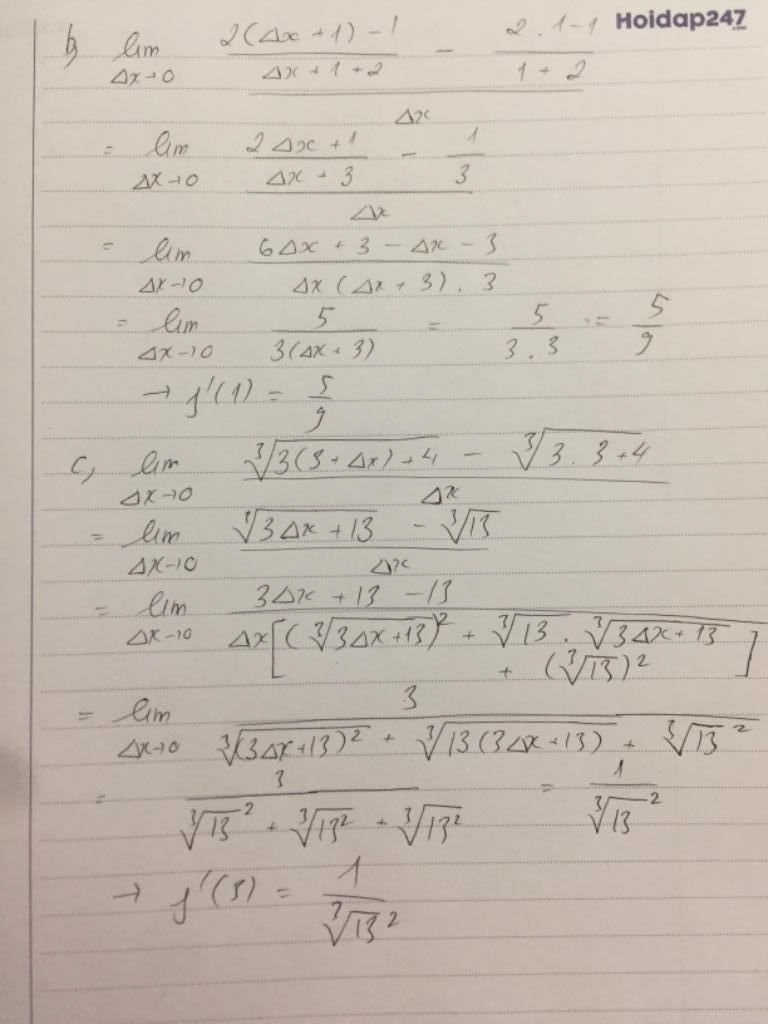 Hoidap247.com
b, lim_{Δx→0} ((2(Δx+1)-1)/(Δx+1+2) - (2.1-1)/(1+2))/Δx
= lim_{Δx→0} ((2Δx+1)/(Δx+3) - 1/3)/Δx
= lim_{Δx→0} (6Δx+3-Δx-3)/(Δx(Δx+3).3)
= lim_{Δx→0} 5/(3(Δx+3)) = 5/(3.3) = 5/9
→ f'(1) = 5/9
c, lim_{Δx→0} (∛(3(3+Δx)+4) - ∛(3.3+4))/Δx
= lim_{Δx→0} (∛(3Δx+13) - ∛13)/Δx
= lim_{Δx→0} (3Δx+13-13)/(Δx[(∛(3Δx+13))² + ∛13.∛(3Δx+13) + (∛13)²])
= lim_{Δx→0} 3/(∛((3Δx+13)²) + ∛(13(3Δx+13)) + ∛13²)
= 3/(∛13² + ∛13² + ∛13²) = 1/∛13²
→ f'(3) = 1/∛13²